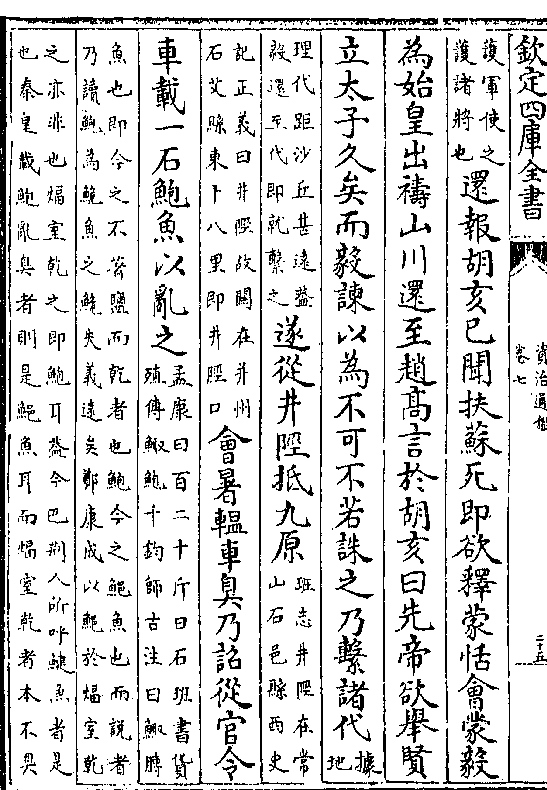 欽定四庫全書
資治通鑑
卷七
二十五
護軍使之
護諸將也
還報胡亥已聞扶蘇死即欲釋蒙恬會蒙毅
為始皇出禱山川還至趙髙言於胡亥曰先帝欲舉賢
立太子久矣而毅諫以為不可不若誅之乃繫諸代
據
地
理代距沙丘甚遠葢
毅還至代即就繫之
遂從井陘抵九原
班志井陘在常
山石邑縣西史
記正義曰井陘故關在并州
石艾縣東十八里即井陘口
會暑轀車臭乃詔從官令
車載一石鮑魚以亂之
孟康曰百二十斤曰石班書貨
殖傳鯫鮑千鈞師古注曰鯫膊
魚也即今之不著鹽而乾者也鮑今之鮑魚也而說者
乃讀鮑為鮠魚之鮠失義逺矣鄭康成以鮑於煏室乾
之亦非也煏室乾之即鮑耳葢今巴荆人所呼鰎魚者是
也秦皇載鮑亂臭者則是鮑魚耳而煏室乾者本不臭